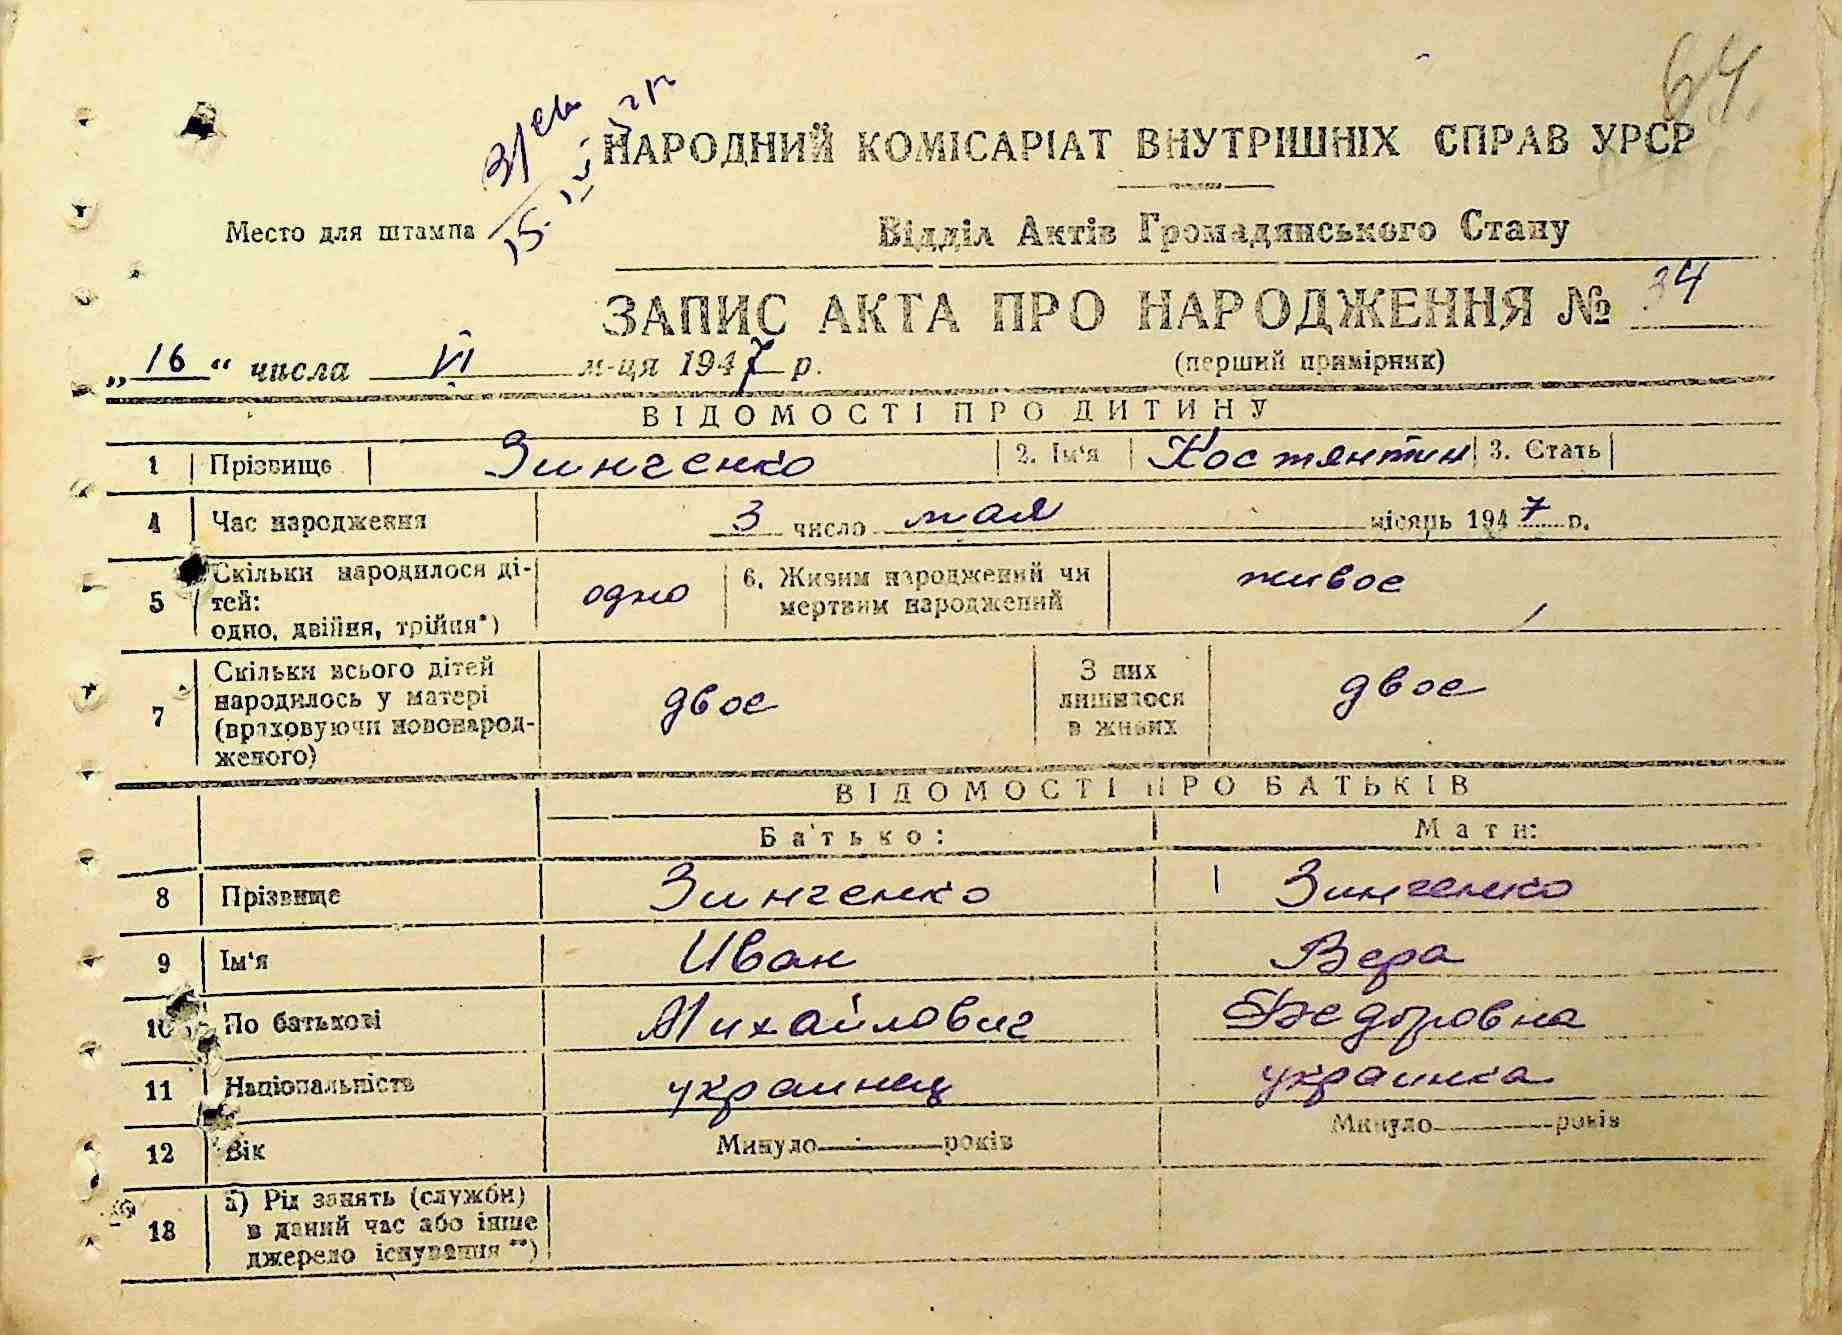 64.
НАРОДНИЙ КОМІСАРІАТ ВНУТРІШНІХ СПРАВ УРСР
Место для штампа
15.
Відділ Актів Громадянського Стану
ЗАПИС АКТА ПРО НАРОДЖЕННЯ № 34
„16“ числа VI м-ця 1947 р. (перший примірник)
ВІДОМОСТІ ПРО ДИТИНУ
1 Прізвище Зинченко 2. Ім'я Костянтин 3. Стать
4 Час народження 3 число мая місяць 1947 р.
5 Скільки народилося ді-
тей:
одно, двійня, трійня*) одно 6. Живим народжений чи
мертвим народжений живое
7 Скільки всього дітей
народилось у матері
(враховуючи новонарод-
женого) двое З них
лишилося
в живих двое
ВІДОМОСТІ ПРО БАТЬКІВ
Батько: Мати:
8 Прізвище Зинченко Зинченко
9 Ім'я Иван Вера
10 По батькові Михайлович Федоровна
11 Національність украинец украинка
12 Вік Минуло років Минуло років
13 а) Рід занять (служби)
в даний час або інше
джерело існування **)